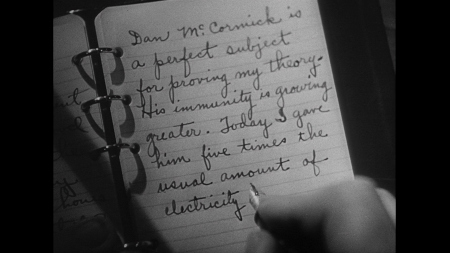 Dan McCormick is
a perfect subject
for proving my theory.
His immunity is growing
greater. Today I gave
him five times the
usual amount of
electricity